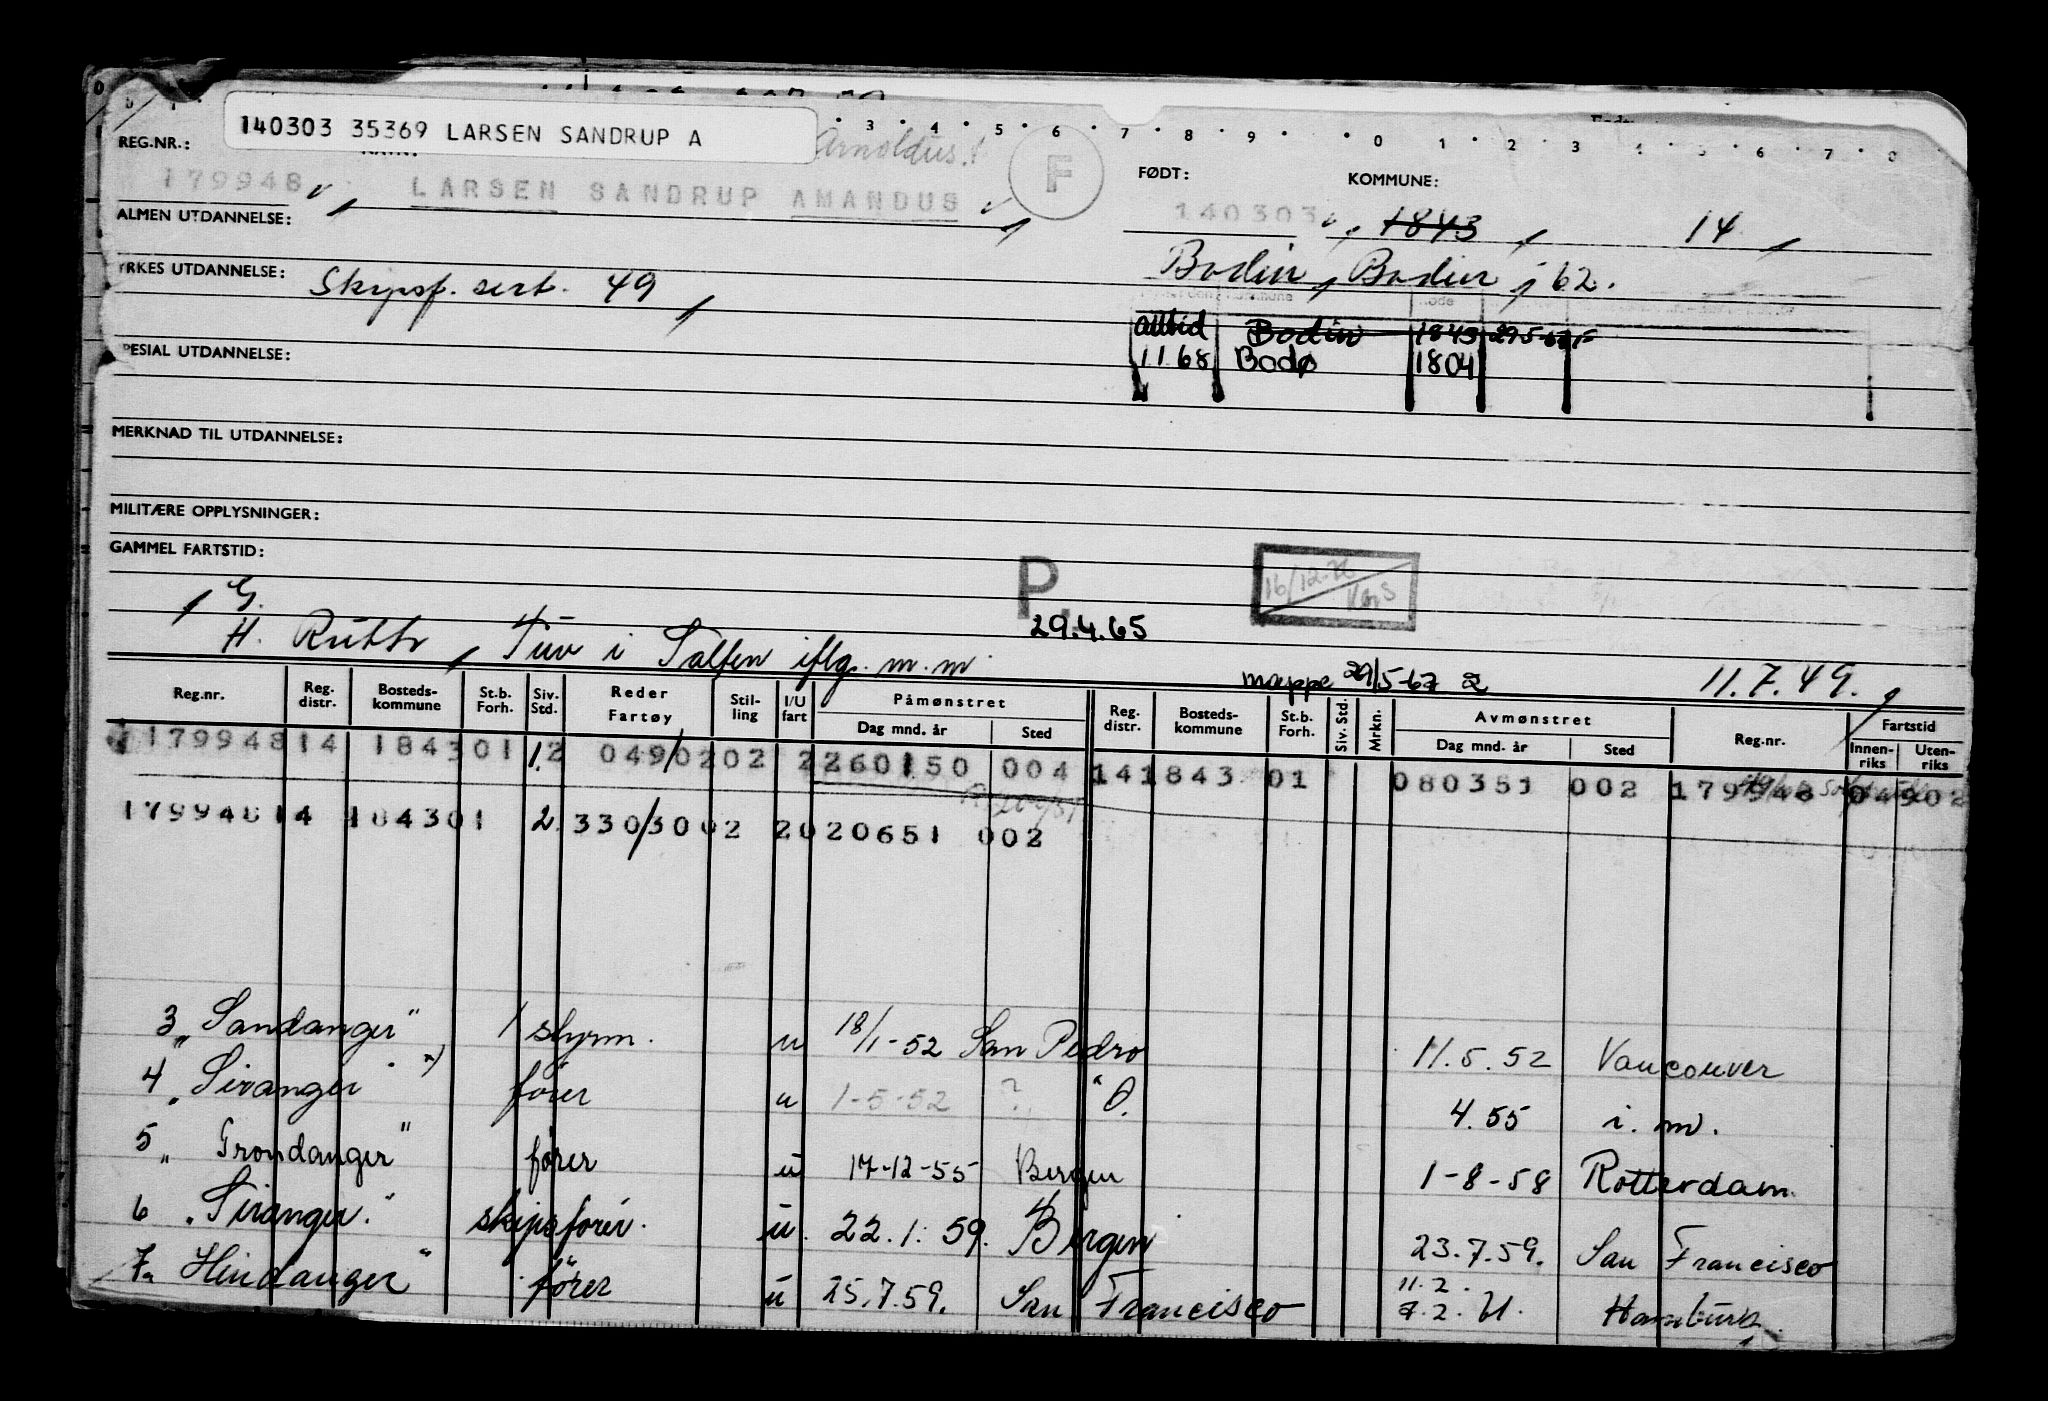 140303 35369 LARSEN SANDRUP A
3 4 5 6 7 8 9 0 1 2 3 4 5 6 7 8
REG.NR.: Arnoldus F FØDT: KOMMUNE:
179948 LARSEN SANDRUP AMANDUS 140303 1843 14
ALMEN UTDANNELSE:
Bodin, Bodin, 62.
YRKES UTDANNELSE: Skipsf. sert. 49
alltid Bodin 1843 29.5-67
SPESIAL UTDANNELSE: 11.68 Bodø 1804
MERKNAD TIL UTDANNELSE:
MILITÆRE OPPLYSNINGER:
GAMMEL FARTSTID:
P. 16/12-
G. 29.4.65
H. Tuv i Salten iflg. m.m.
mappe 29/5-67 11.7.49.
Reg.nr. Reg. distr. Bosteds-kommune St.b. Forh. Siv. Std. Reder Fartøy Stil-ling I/U fart Påmønstret Dag mnd. år Sted Reg. distr. Bosteds-kommune St.b. Forh. Siv. Std. Mrkn. Avmønstret Dag mnd. år Sted Reg.nr. Fartstid Innen-riks Uten-riks
179948 14 1843 01 1.2 049/02 02 2 260150 004 14 1843 01 080351 002 179948 04902
179948 14 1843 01 2. 330/30 02 2 020651 002
3 "Sandanger" 1 styrm. u 18/1-52 San Pedro 11.5.52 Vancouver
4 "Siranger" x) fører u 1-5-52 ? "O. 4.55 i.m.
5 "Trondanger" fører u 17-12-55 Bergen 1-8-58 Rotterdam
6 "Siranger" skipsfører. u. 22.1.59. Bergen 23.7.59. San Francisco
7 "Hindanger" fører u 25.7.59. San Francisco 11.2. 9.2.61. Hamburg